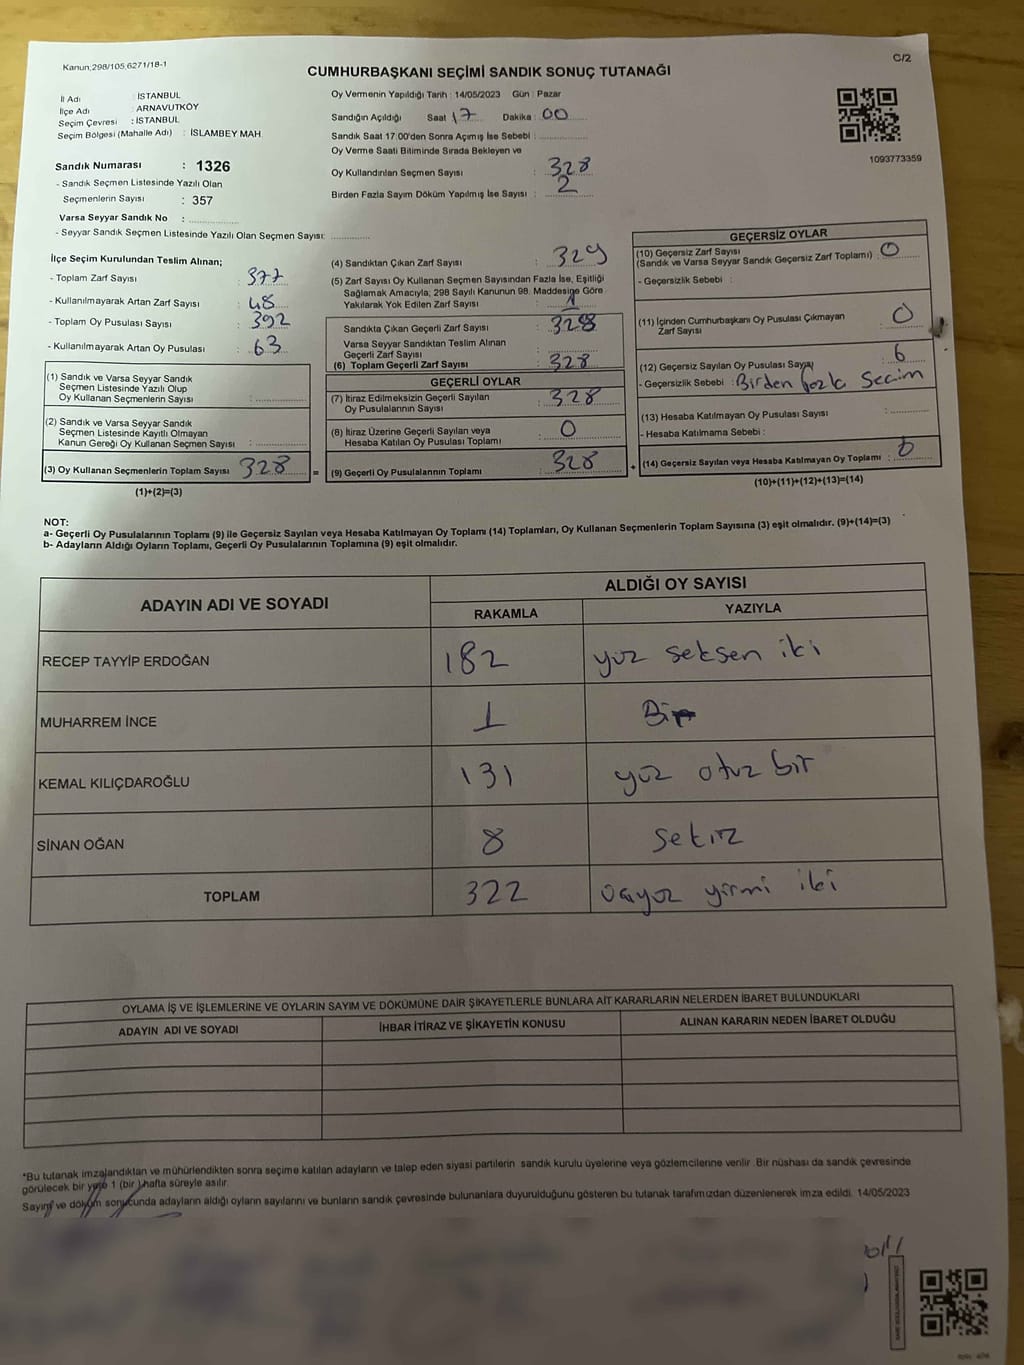 Kanun;298/105,6271/18-1
C/2
CUMHURBAŞKANI SEÇİMİ SANDIK SONUÇ TUTANAĞI
İl Adı : İSTANBUL
İlçe Adı : ARNAVUTKÖY
Seçim Çevresi : İSTANBUL
Seçim Bölgesi (Mahalle Adı) : İSLAMBEY MAH.
Oy Vermenin Yapıldığı Tarih : 14/05/2023 Gün : Pazar
Sandığın Açıldığı Saat 17 Dakika : 00
Sandık Saat 17:00'den Sonra Açımış İse Sebebi :
Oy Verme Saati Bitiminde Sırada Bekleyen ve
Oy Kullandırılan Seçmen Sayısı : 328
Birden Fazla Sayım Döküm Yapılmış İse Sayısı : 2
1093773359
Sandık Numarası : 1326
- Sandık Seçmen Listesinde Yazılı Olan
Seçmenlerin Sayısı : 357
Varsa Seyyar Sandık No :
- Seyyar Sandık Seçmen Listesinde Yazılı Olan Seçmen Sayısı:
İlçe Seçim Kurulundan Teslim Alınan;
- Toplam Zarf Sayısı : 377
- Kullanılmayarak Artan Zarf Sayısı : 48
- Toplam Oy Pusulası Sayısı : 392
- Kullanılmayarak Artan Oy Pusulası : 63
(1) Sandık ve Varsa Seyyar Sandık
Seçmen Listesinde Yazılı Olup
Oy Kullanan Seçmenlerin Sayısı :
(2) Sandık ve Varsa Seyyar Sandık
Seçmen Listesinde Kayıtlı Olmayan
Kanun Gereği Oy Kullanan Seçmen Sayısı :
(3) Oy Kullanan Seçmenlerin Toplam Sayısı 328
(1)+(2)=(3)
(4) Sandıktan Çıkan Zarf Sayısı : 329
(5) Zarf Sayısı Oy Kullanan Seçmen Sayısından Fazla İse, Eşitliği
Sağlamak Amacıyla; 298 Sayılı Kanunun 98. Maddesine Göre
Yakılarak Yok Edilen Zarf Sayısı : 1
Sandıkta Çıkan Geçerli Zarf Sayısı : 328
Varsa Seyyar Sandıktan Teslim Alınan
Geçerli Zarf Sayısı :
(6) Toplam Geçerli Zarf Sayısı : 328
GEÇERLİ OYLAR
(7) İtiraz Edilmeksizin Geçerli Sayılan
Oy Pusulalarının Sayısı : 328
(8) İtiraz Üzerine Geçerli Sayılan veya
Hesaba Katılan Oy Pusulası Toplamı : 0
= (9) Geçerli Oy Pusulalarının Toplamı : 328
GEÇERSİZ OYLAR
(10) Geçersiz Zarf Sayısı
(Sandık ve Varsa Seyyar Sandık Geçersiz Zarf Toplamı) : 0
- Geçersizlik Sebebi :
(11) İçinden Cumhurbaşkanı Oy Pusulası Çıkmayan
Zarf Sayısı : 0
(12) Geçersiz Sayılan Oy Pusulası Sayısı : 6
- Geçersizlik Sebebi : Birden fazla Secim
(13) Hesaba Katılmayan Oy Pusulası Sayısı :
- Hesaba Katılmama Sebebi :
+ (14) Geçersiz Sayılan veya Hesaba Katılmayan Oy Toplamı : 6
(10)+(11)+(12)+(13)=(14)
NOT:
a- Geçerli Oy Pusulalarının Toplamı (9) ile Geçersiz Sayılan veya Hesaba Katılmayan Oy Toplamı (14) Toplamları, Oy Kullanan Seçmenlerin Toplam Sayısına (3) eşit olmalıdır. (9)+(14)=(3)
b- Adayların Aldığı Oyların Toplamı, Geçerli Oy Pusulalarının Toplamına (9) eşit olmalıdır.
ADAYIN ADI VE SOYADI
ALDIĞI OY SAYISI
RAKAMLA YAZIYLA
RECEP TAYYİP ERDOĞAN 182 yüz seksen iki
MUHARREM İNCE 1 Bir
KEMAL KILIÇDAROĞLU 131 yüz otuz bir
SİNAN OĞAN 8 Sekiz
TOPLAM 322 üçyüz yirmi iki
OYLAMA İŞ VE İŞLEMLERİNE VE OYLARIN SAYIM VE DÖKÜMÜNE DAİR ŞİKAYETLERLE BUNLARA AİT KARARLARIN NELERDEN İBARET BULUNDUKLARI
ADAYIN ADI VE SOYADI İHBAR İTİRAZ VE ŞİKAYETİN KONUSU ALINAN KARARIN NEDEN İBARET OLDUĞU
*Bu tutanak imzalandıktan ve mühürlendikten sonra seçime katılan adayların ve talep eden siyasi partilerin sandık kurulu üyelerine veya gözlemcilerine verilir. Bir nüshası da sandık çevresinde
görülecek bir yere 1 (bir) hafta süreyle asılır.
Sayım ve döküm sonucunda adayların aldığı oyların sayılarını ve bunların sandık çevresinde bulunanlara duyurulduğunu gösteren bu tutanak tarafımızdan düzenlenerek imza edildi. 14/05/2023